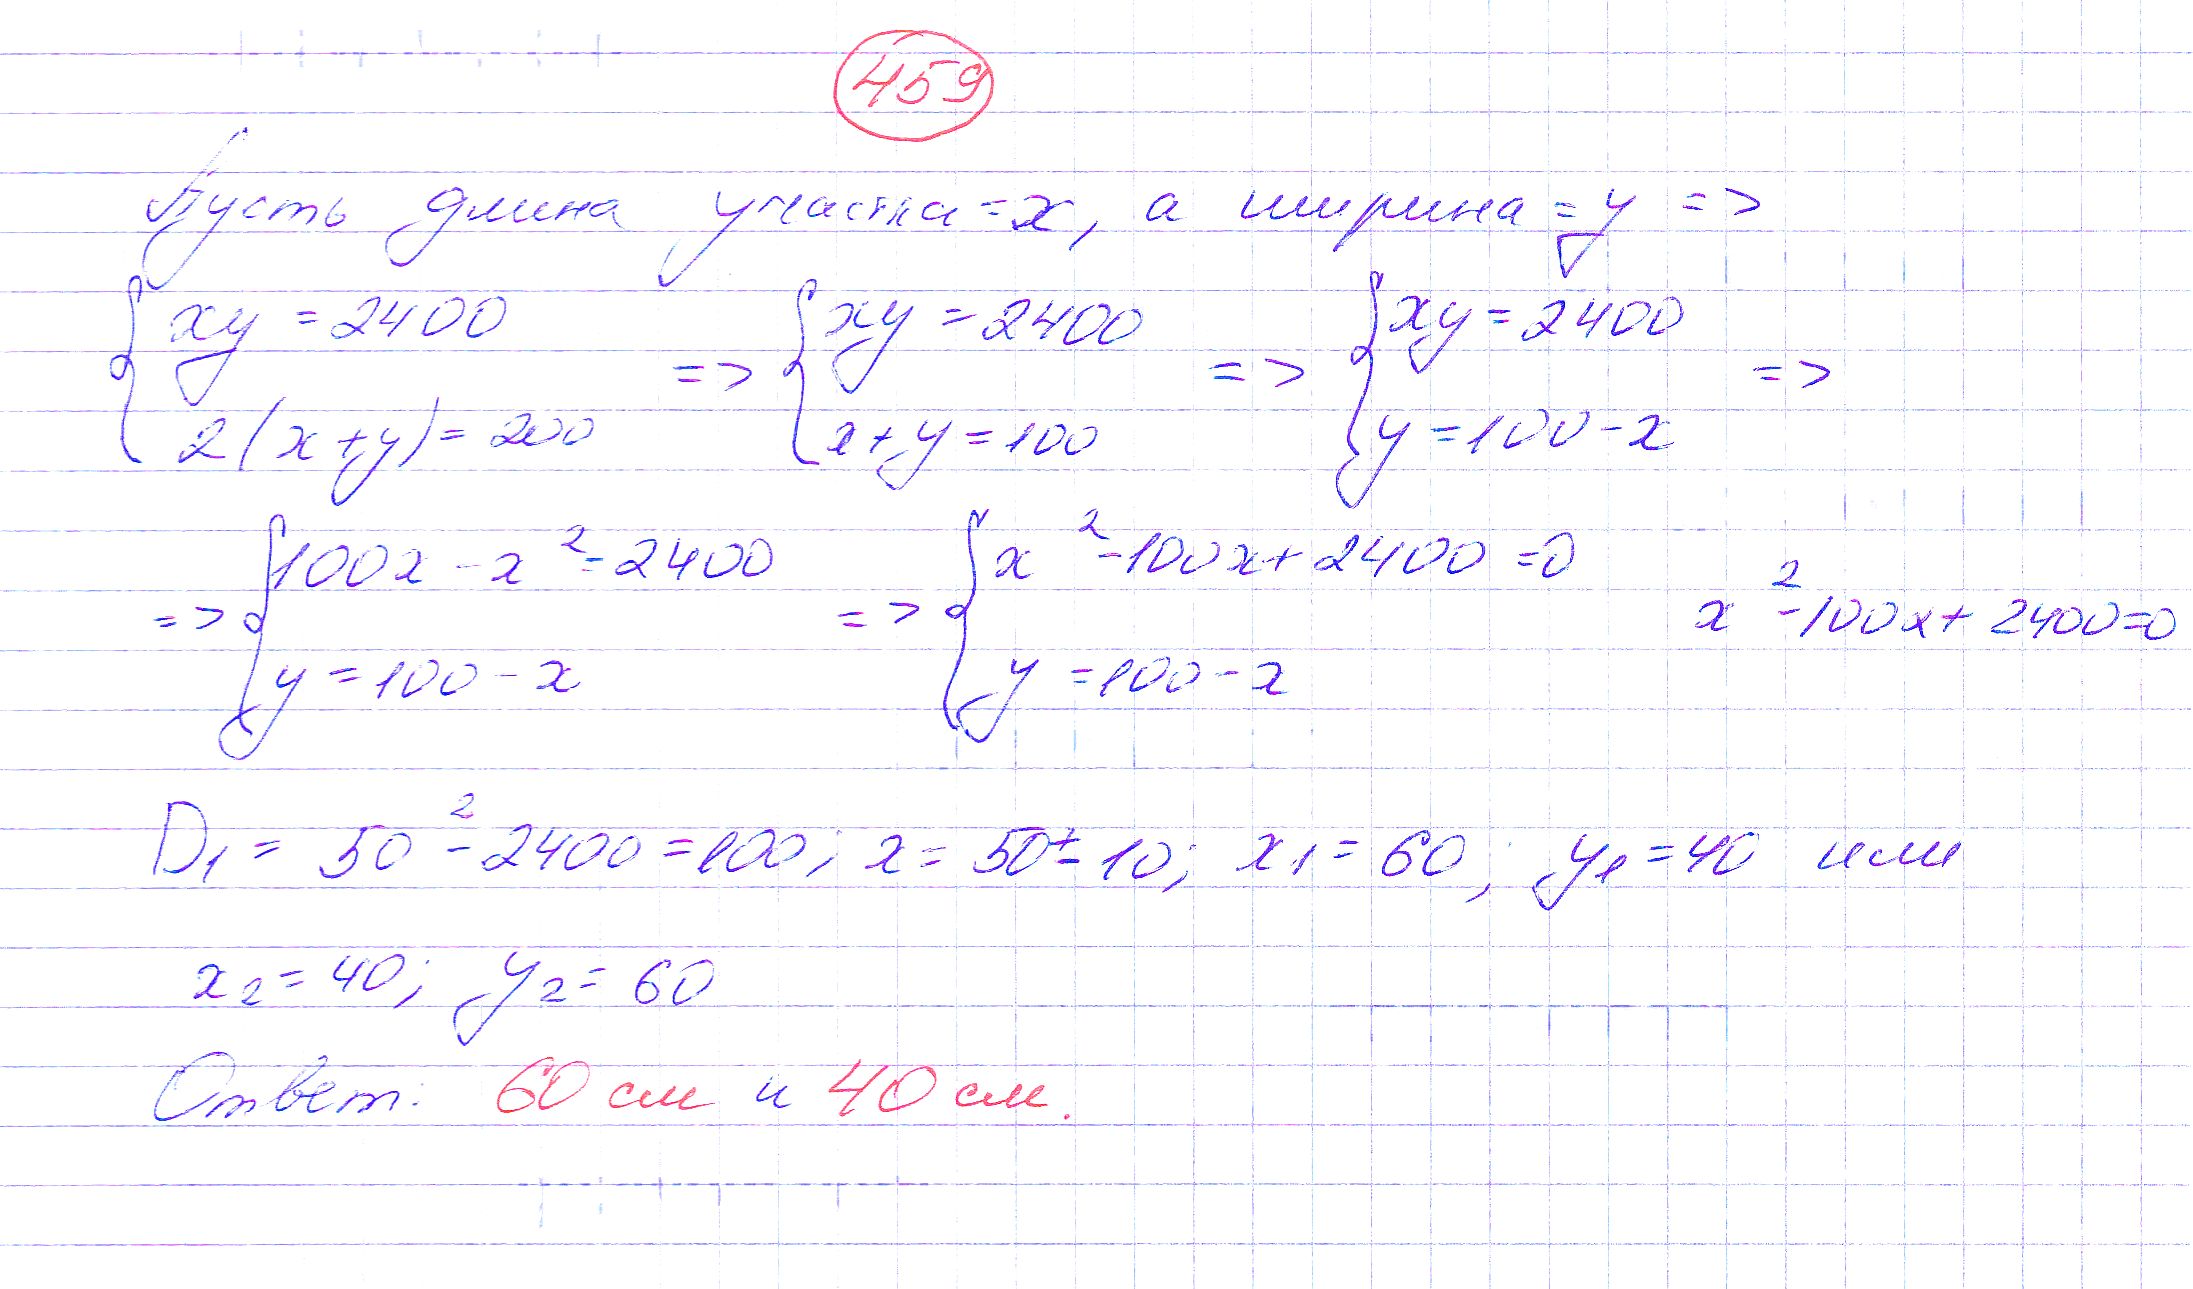 459
Пусть длина участка = x, а ширина = y =>
{ xy = 2400 => { xy = 2400 => { xy = 2400 =>
2(x+y) = 200 x+y = 100 y = 100 - x
=> { 100x - x² = 2400 => { x² - 100x + 2400 = 0 x² - 100x + 2400 = 0
y = 100 - x y = 100 - x
D₁ = 50² - 2400 = 100; x = 50 ± 10; x₁ = 60; y₁ = 40 или
x₂ = 40; y₂ = 60
Ответ: 60 см и 40 см.